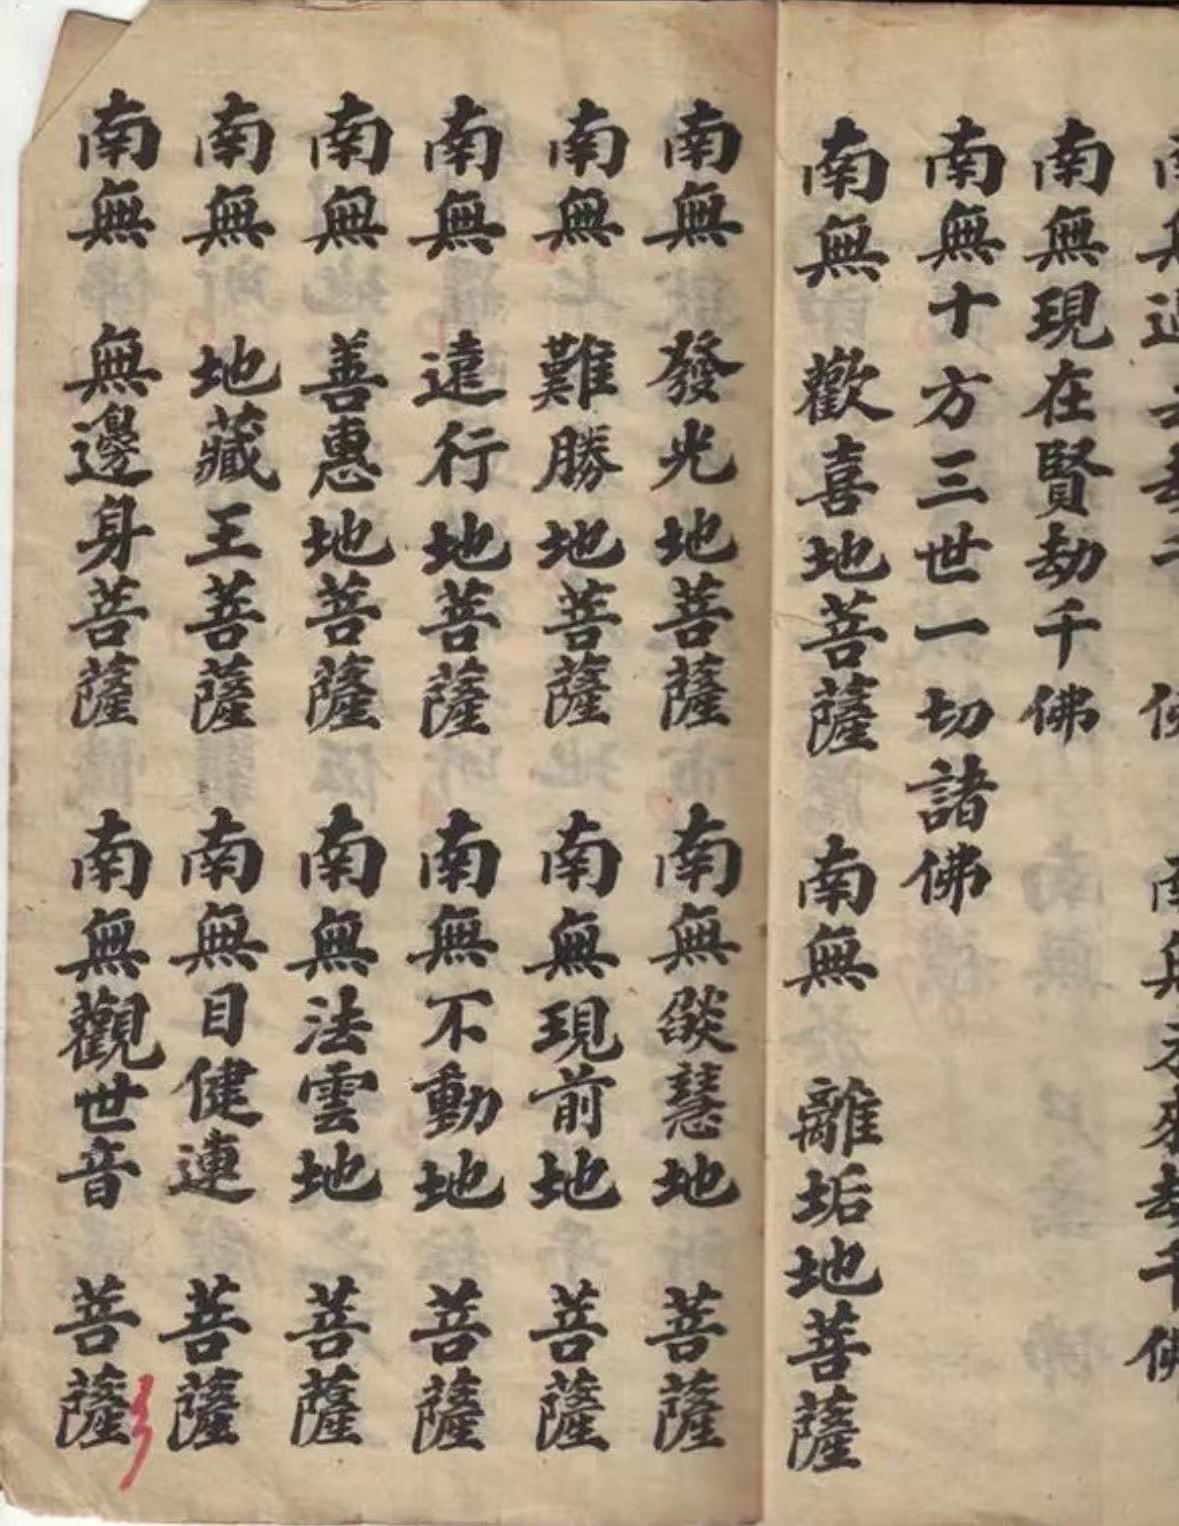 南無過去劫千佛 南無未來劫千佛
南無現在賢劫千佛
南無十方三世一切諸佛
南無 歡喜地菩薩 南無 離垢地菩薩
南無 發光地菩薩 南無燄慧地 菩薩
南無 難勝地菩薩 南無現前地 菩薩
南無 遠行地菩薩 南無不動地 菩薩
南無 善惠地菩薩 南無法雲地 菩薩
南無 地藏王菩薩 南無目健連 菩薩
南無 無邊身菩薩 南無觀世音 菩薩